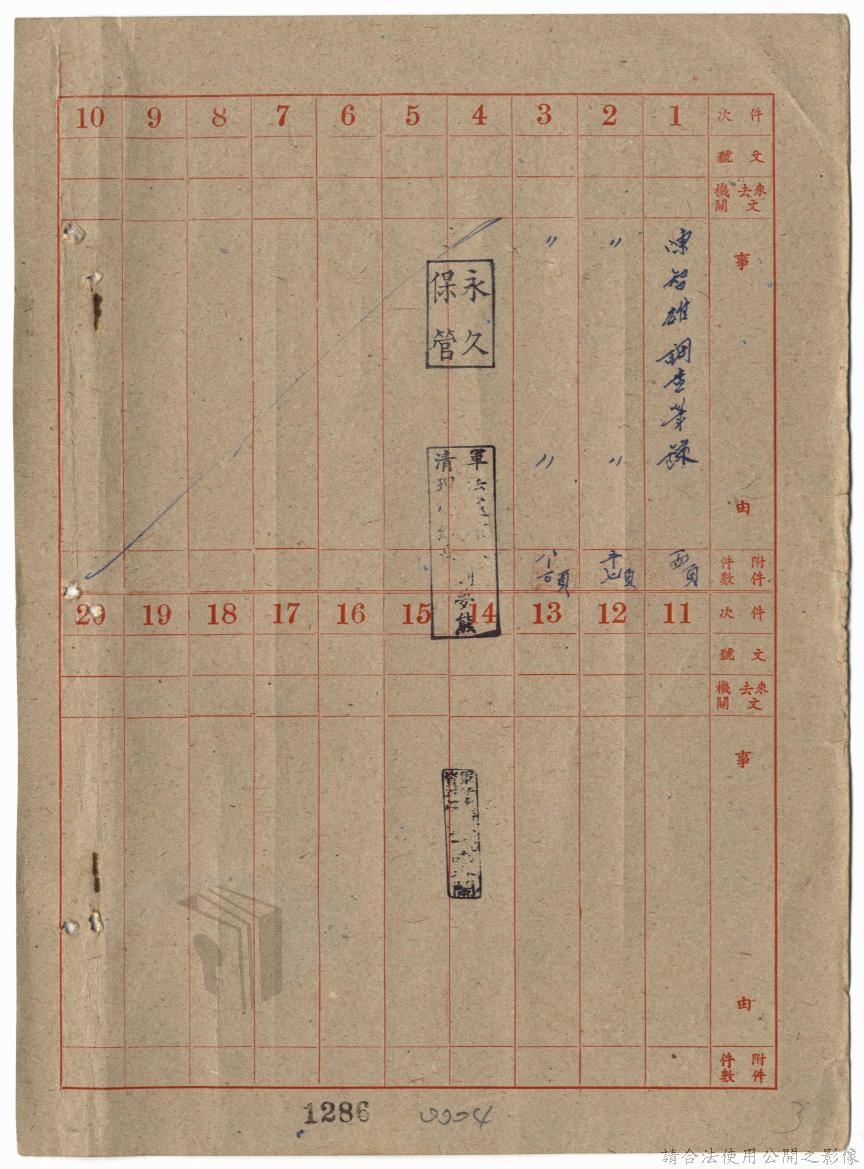 件次 1 2 3 4 5 6 7 8 9 10
文號
來去文機關
事由
陳智雄調查筆錄
〃 〃
〃 〃
附件件數
頁
頁
頁
永久保管
軍法
清理
夢熊
件次 11 12 13 14 15 16 17 18 19 20
文號
來去文機關
事由
附件件數
1286 0004 3
請合法使用公開之影像